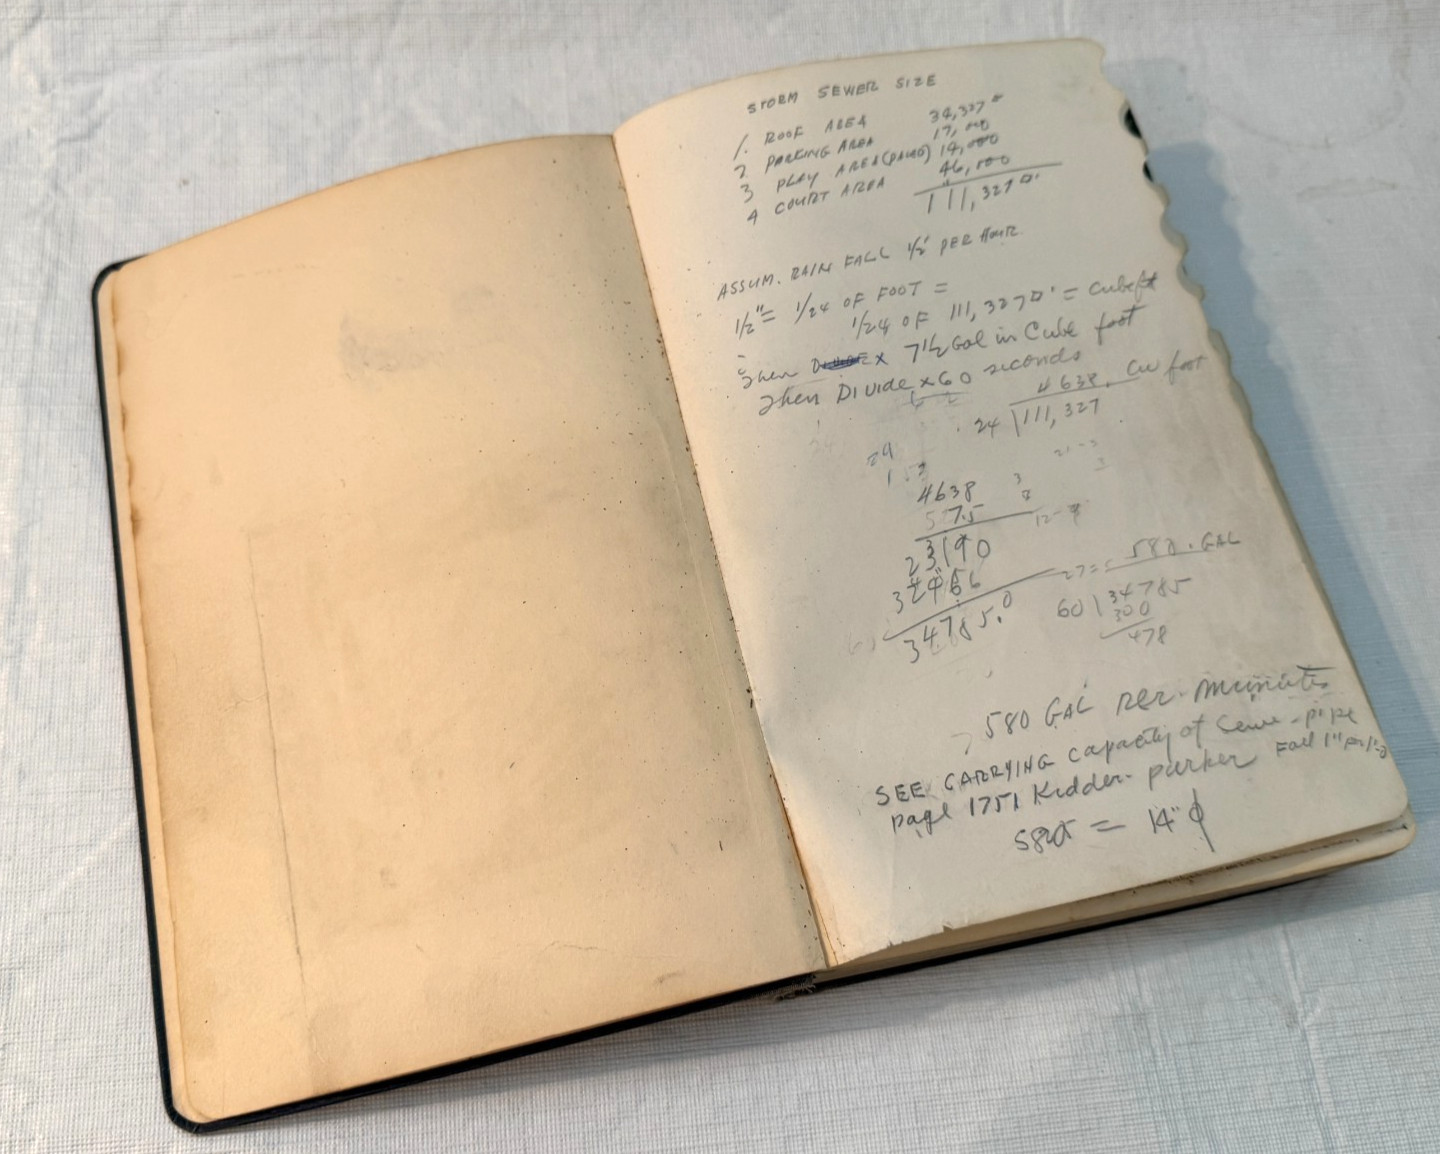 STORM SEWER SIZE
1. ROOF AREA 34,327
2 PARKING AREA 17,000
3 PLAY AREA (PAVED) 14,000
4 COURT AREA 46,000
111,327 □'
ASSUM. RAIN FALL 1/2" PER HOUR
1/2" = 1/24 OF FOOT =
1/24 OF 111,327 □' = Cubeft
Then x 7 1/2 Gal in Cube foot
Then Divide x 60 seconds
4638. Cu foot
24 111,327
4638
7.5
23190
32466
34785.0
580. GAL
60 34785
300
478
580 GAL per. minute
SEE CARRYING capacity of sewer-pipe
page 1751 Kidder-parker Fall 1" per 1'-0
= 14" φ